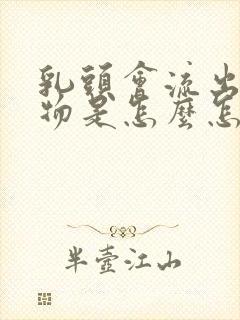 乳頭會流出
物是怎麼怎
半壺江山